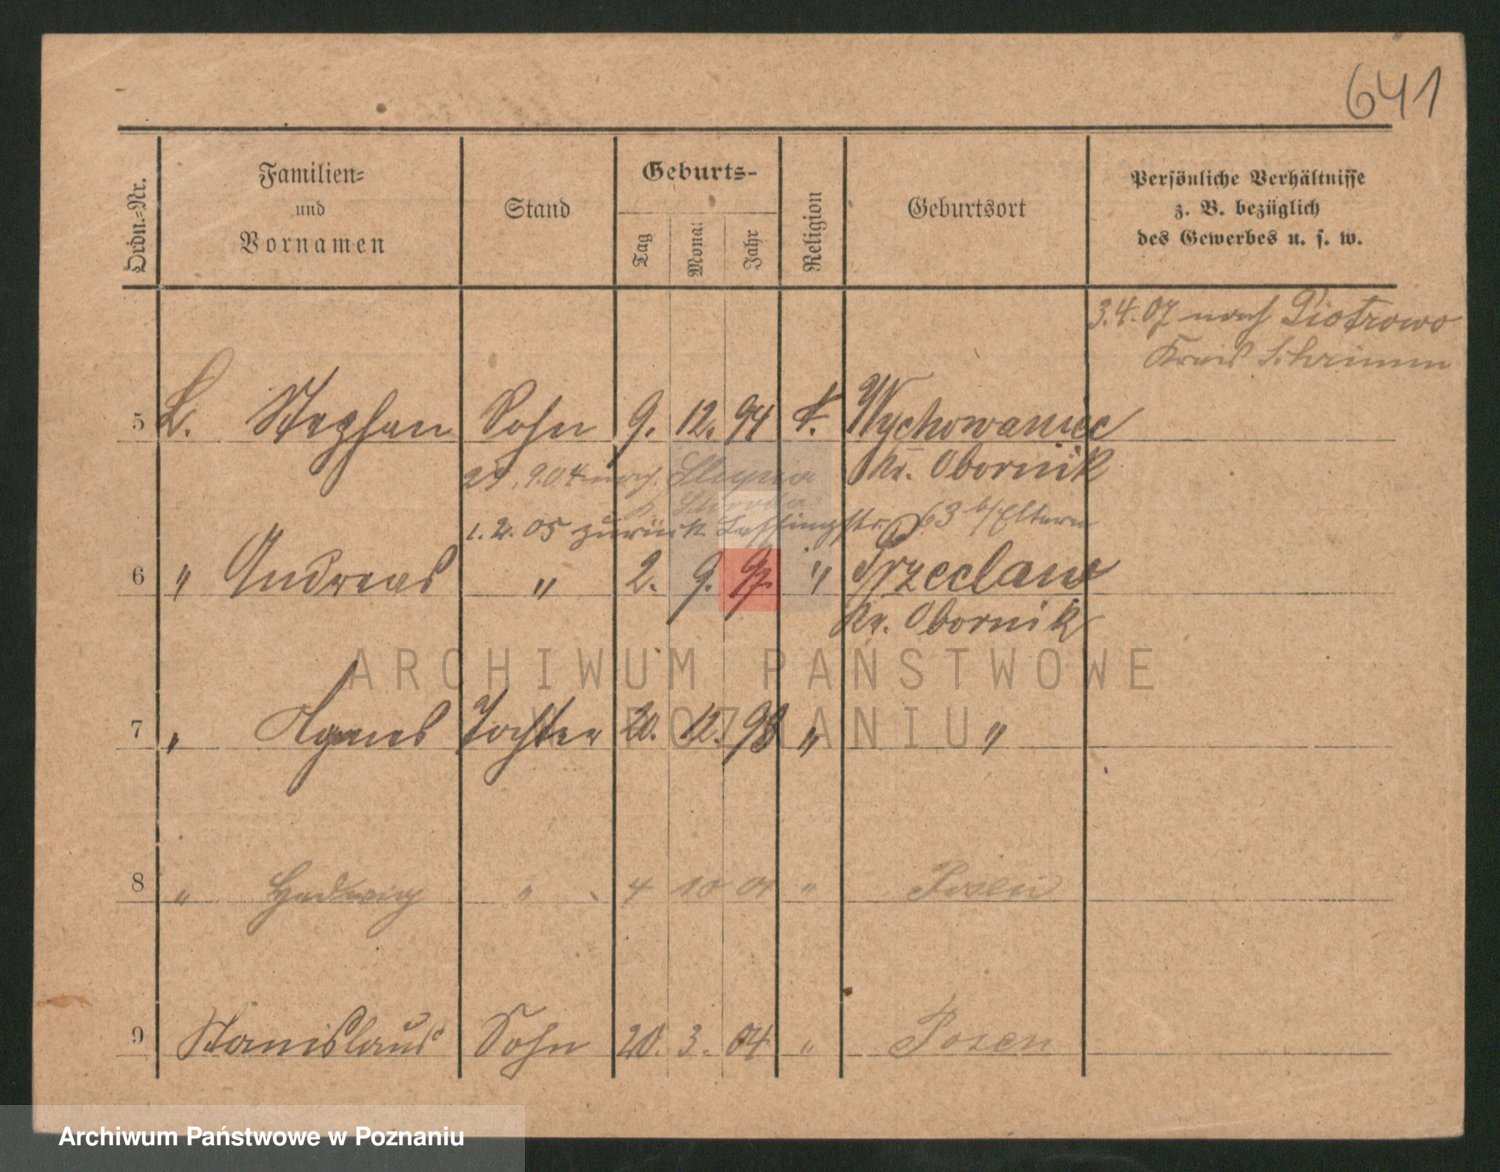 641
Ordn.-Nr.
Familien-
und
Vornamen
Stand
Geburts-
Tag
Monat
Jahr
Religion
Geburtsort
Persönliche Verhältnisse
z. B. bezüglich
des Gewerbes u. s. w.
3.4.07 nach Piotrowo
Kreis Schrimm
5 L. Stephan Sohn 9. 12. 94 k. Wychowaniec
Kr. Obornik
904 nach
1. 2. 05 zurück Lessingstr. 63 b/Eltern
6 " Andreas " 2. 9. 97. " Przeclaw
Kr. Obornik
7 " Agnes Tochter 20. 12. 98 " "
8 " Hedwig " 4 10 01 " Posen
9 Stanislaus Sohn 20. 3. 04 " Posen
ARCHIWUM PAŃSTWOWE
W POZNANIU
Archiwum Państwowe w Poznaniu